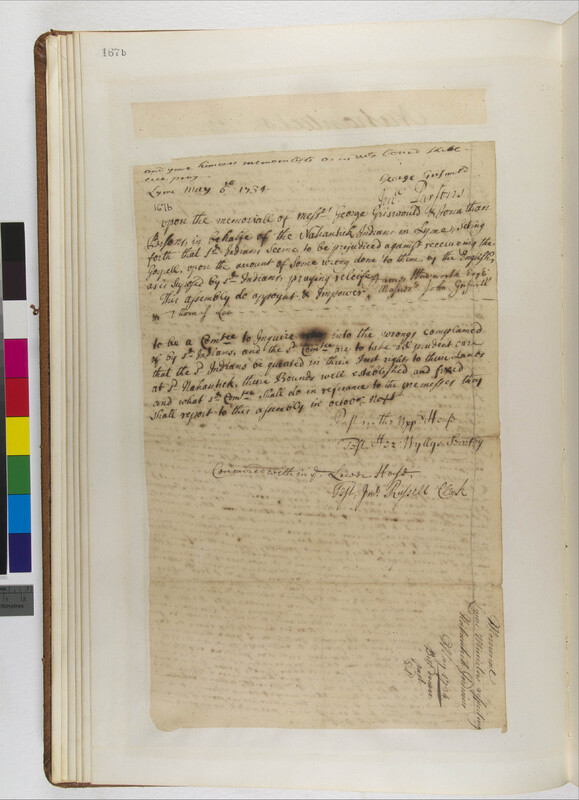 167b
and your humble memorialists as in duty bound shall
ever pray
Lyme May 6th 1734.
George Griswold
Jnº Parsons
167b
upon the memoriall of messrs George Griswould & Jonathan
Parsons in behalfe of the Nahantick Indians in Lyme, seting
forth that sd Indians seeme to be prejudiced against receiveing the
Gospell, upon the amount of some wrong done to them by the English
as is supposed by sd Indians praying releife
This assembly do appoynt & Impower James Wadsworth Esqr
Messurs John Griswould
& Thomas Lee
to be a Comtee to Inquire into the wrongs complained
of by sd Indians, and the sd Comtee are to take all prudent care
that the sd Indians be quieted in there Just right to there Lands
at sd Nahantick, there Bounds well established and fixed
and what sd Comtee shall do in referance to the premesses they
shall report to this assembly in october next
Past in the upper House
Test Hez Wyllys Secretry
Concurred with in ye Lower House
Test Jnº Russell Clerk
Memorial
Lyme Ministers respecting
Nehantick Indians
May 1734